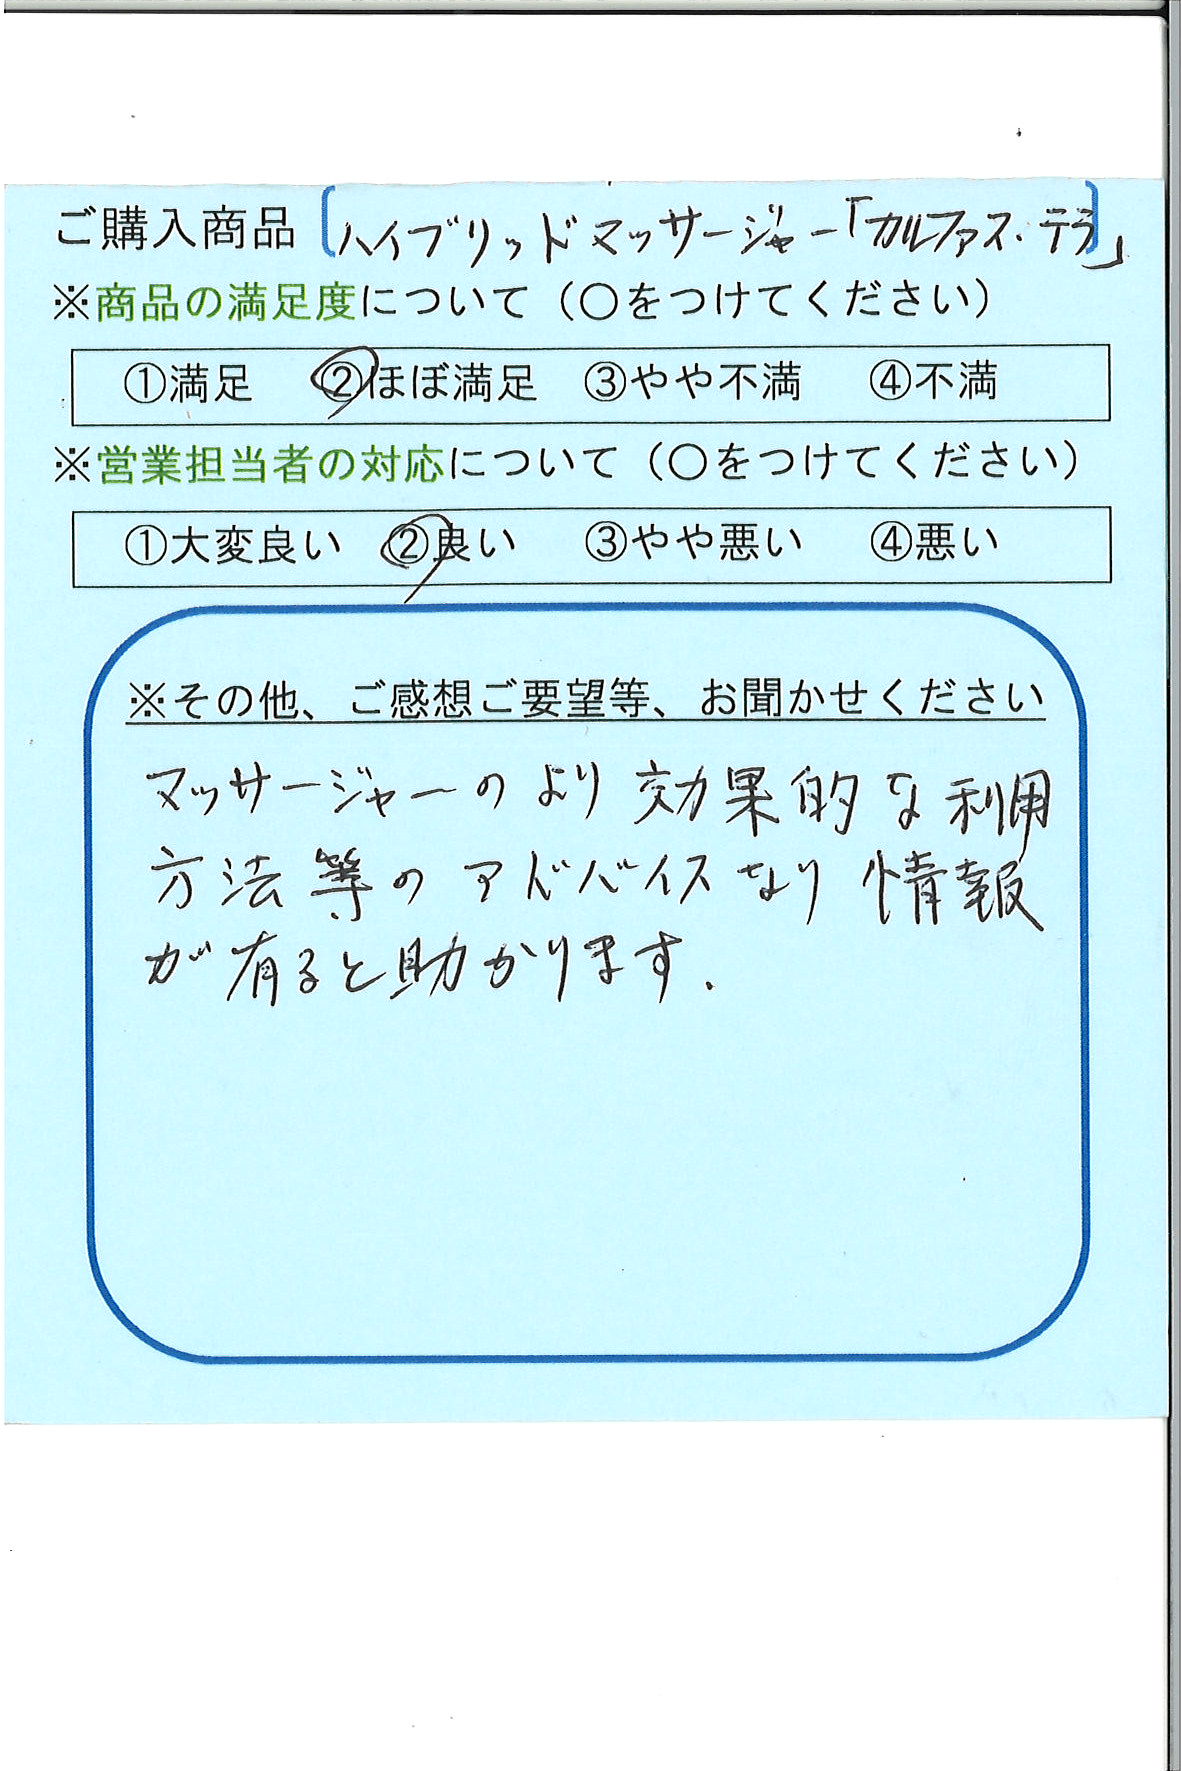 ご購入商品［ハイブリッドマッサージャー「カルファス・テラ」］
※商品の満足度について（○をつけてください）
①満足　②ほぼ満足　③やや不満　④不満
※営業担当者の対応について（○をつけてください）
①大変良い　②良い　③やや悪い　④悪い
※その他、ご感想ご要望等、お聞かせください
マッサージャーのより効果的な利用
方法等のアドバイスなり情報
が有ると助かります.